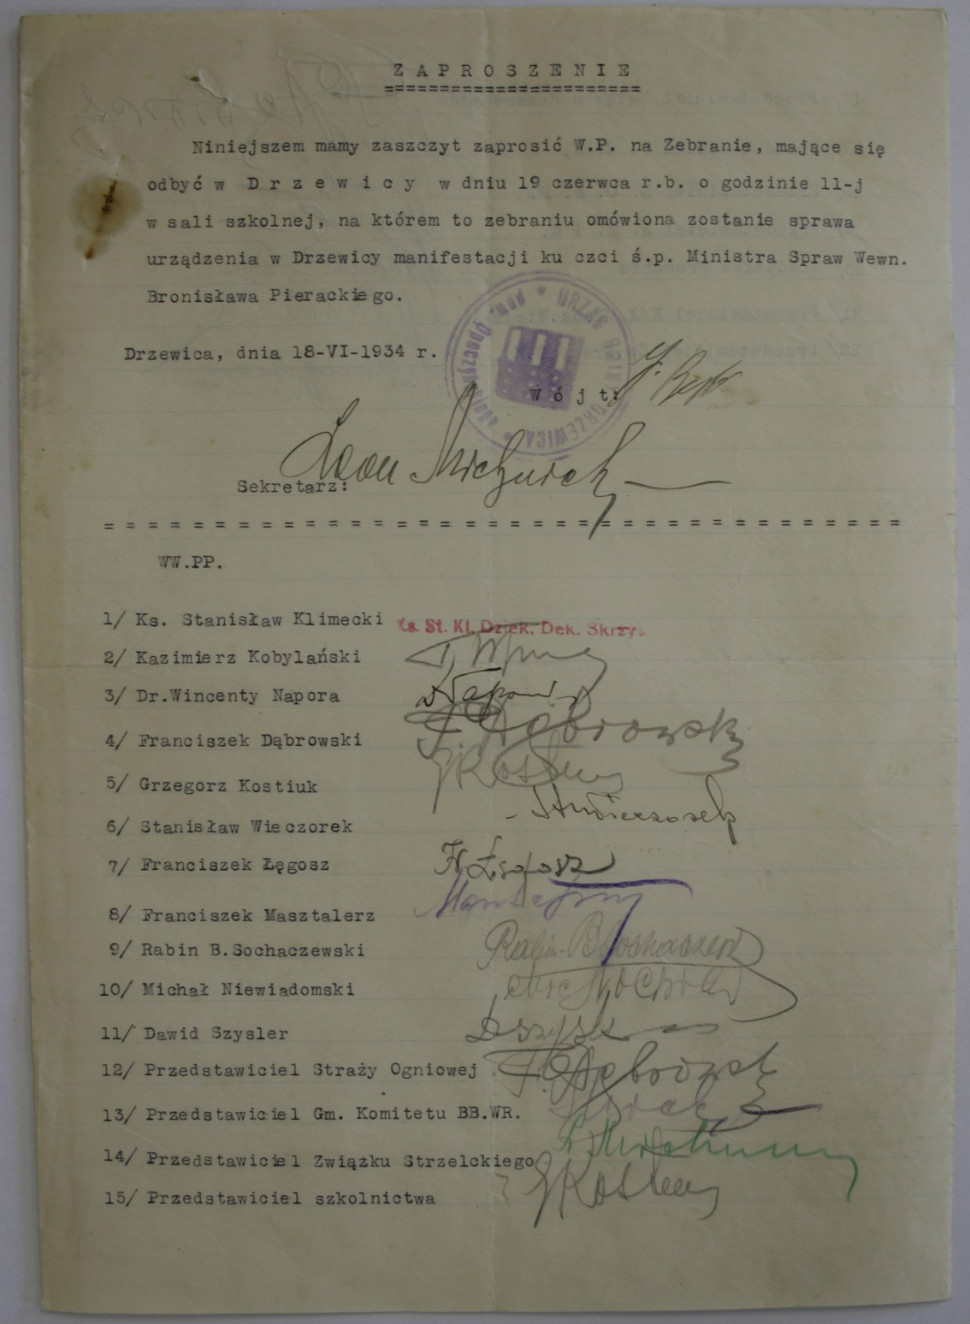 ZAPROSZENIE
Niniejszem mamy zaszczyt zaprosić W.P. na Zebranie, mające się
odbyć w Drzewicy w dniu 19 czerwca r.b. o godzinie 11-j
w sali szkolnej, na którem to zebraniu omówiona zostanie sprawa
urządzenia w Drzewicy manifestacji ku czci ś.p. Ministra Spraw Wewn.
Bronisława Pierackiego.
Drzewica, dnia 18-VI-1934 r.
Wójt:
Leon
Sekretarz:
WW.PP.
1/ Ks. Stanisław Klimecki Ks. St. Kl. Dziek. Dek. Skrzy.
2/ Kazimierz Kobylański
3/ Dr.Wincenty Napora Napora
4/ Franciszek Dąbrowski F. Dąbrowski
5/ Grzegorz Kostiuk GKostiuk
6/ Stanisław Wieczorek StWieczorek
7/ Franciszek Łęgosz Fr. Łęgosz
8/ Franciszek Masztalerz
9/ Rabin B.Sochaczewski Rabin B Sochaczewski
10/ Michał Niewiadomski
11/ Dawid Szysler
12/ Przedstawiciel Straży Ogniowej F. Dąbrowski
13/ Przedstawiciel Gm. Komitetu BB.WR.
14/ Przedstawiciel Związku Strzelckiego
15/ Przedstawiciel szkolnictwa GKostiuk